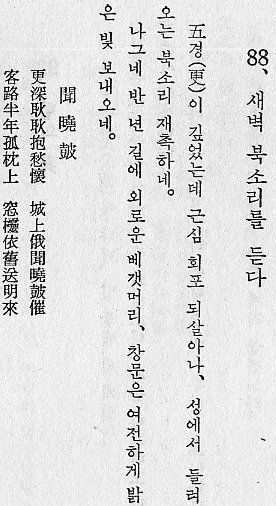 88、새벽 북소리를 듣다
五경(更)이 깊었는데 근심 회포 되살아나、성에서 들려
오는 북소리 재촉하네。
나그네 반 년 길에 외로운 베갯머리、창문은 여전하게 밝
은 빛 보내오네。
聞曉鼓
更深耿耿抱愁懷 城上俄聞曉鼓催
客路半年孤枕上 窓欞依舊送明來